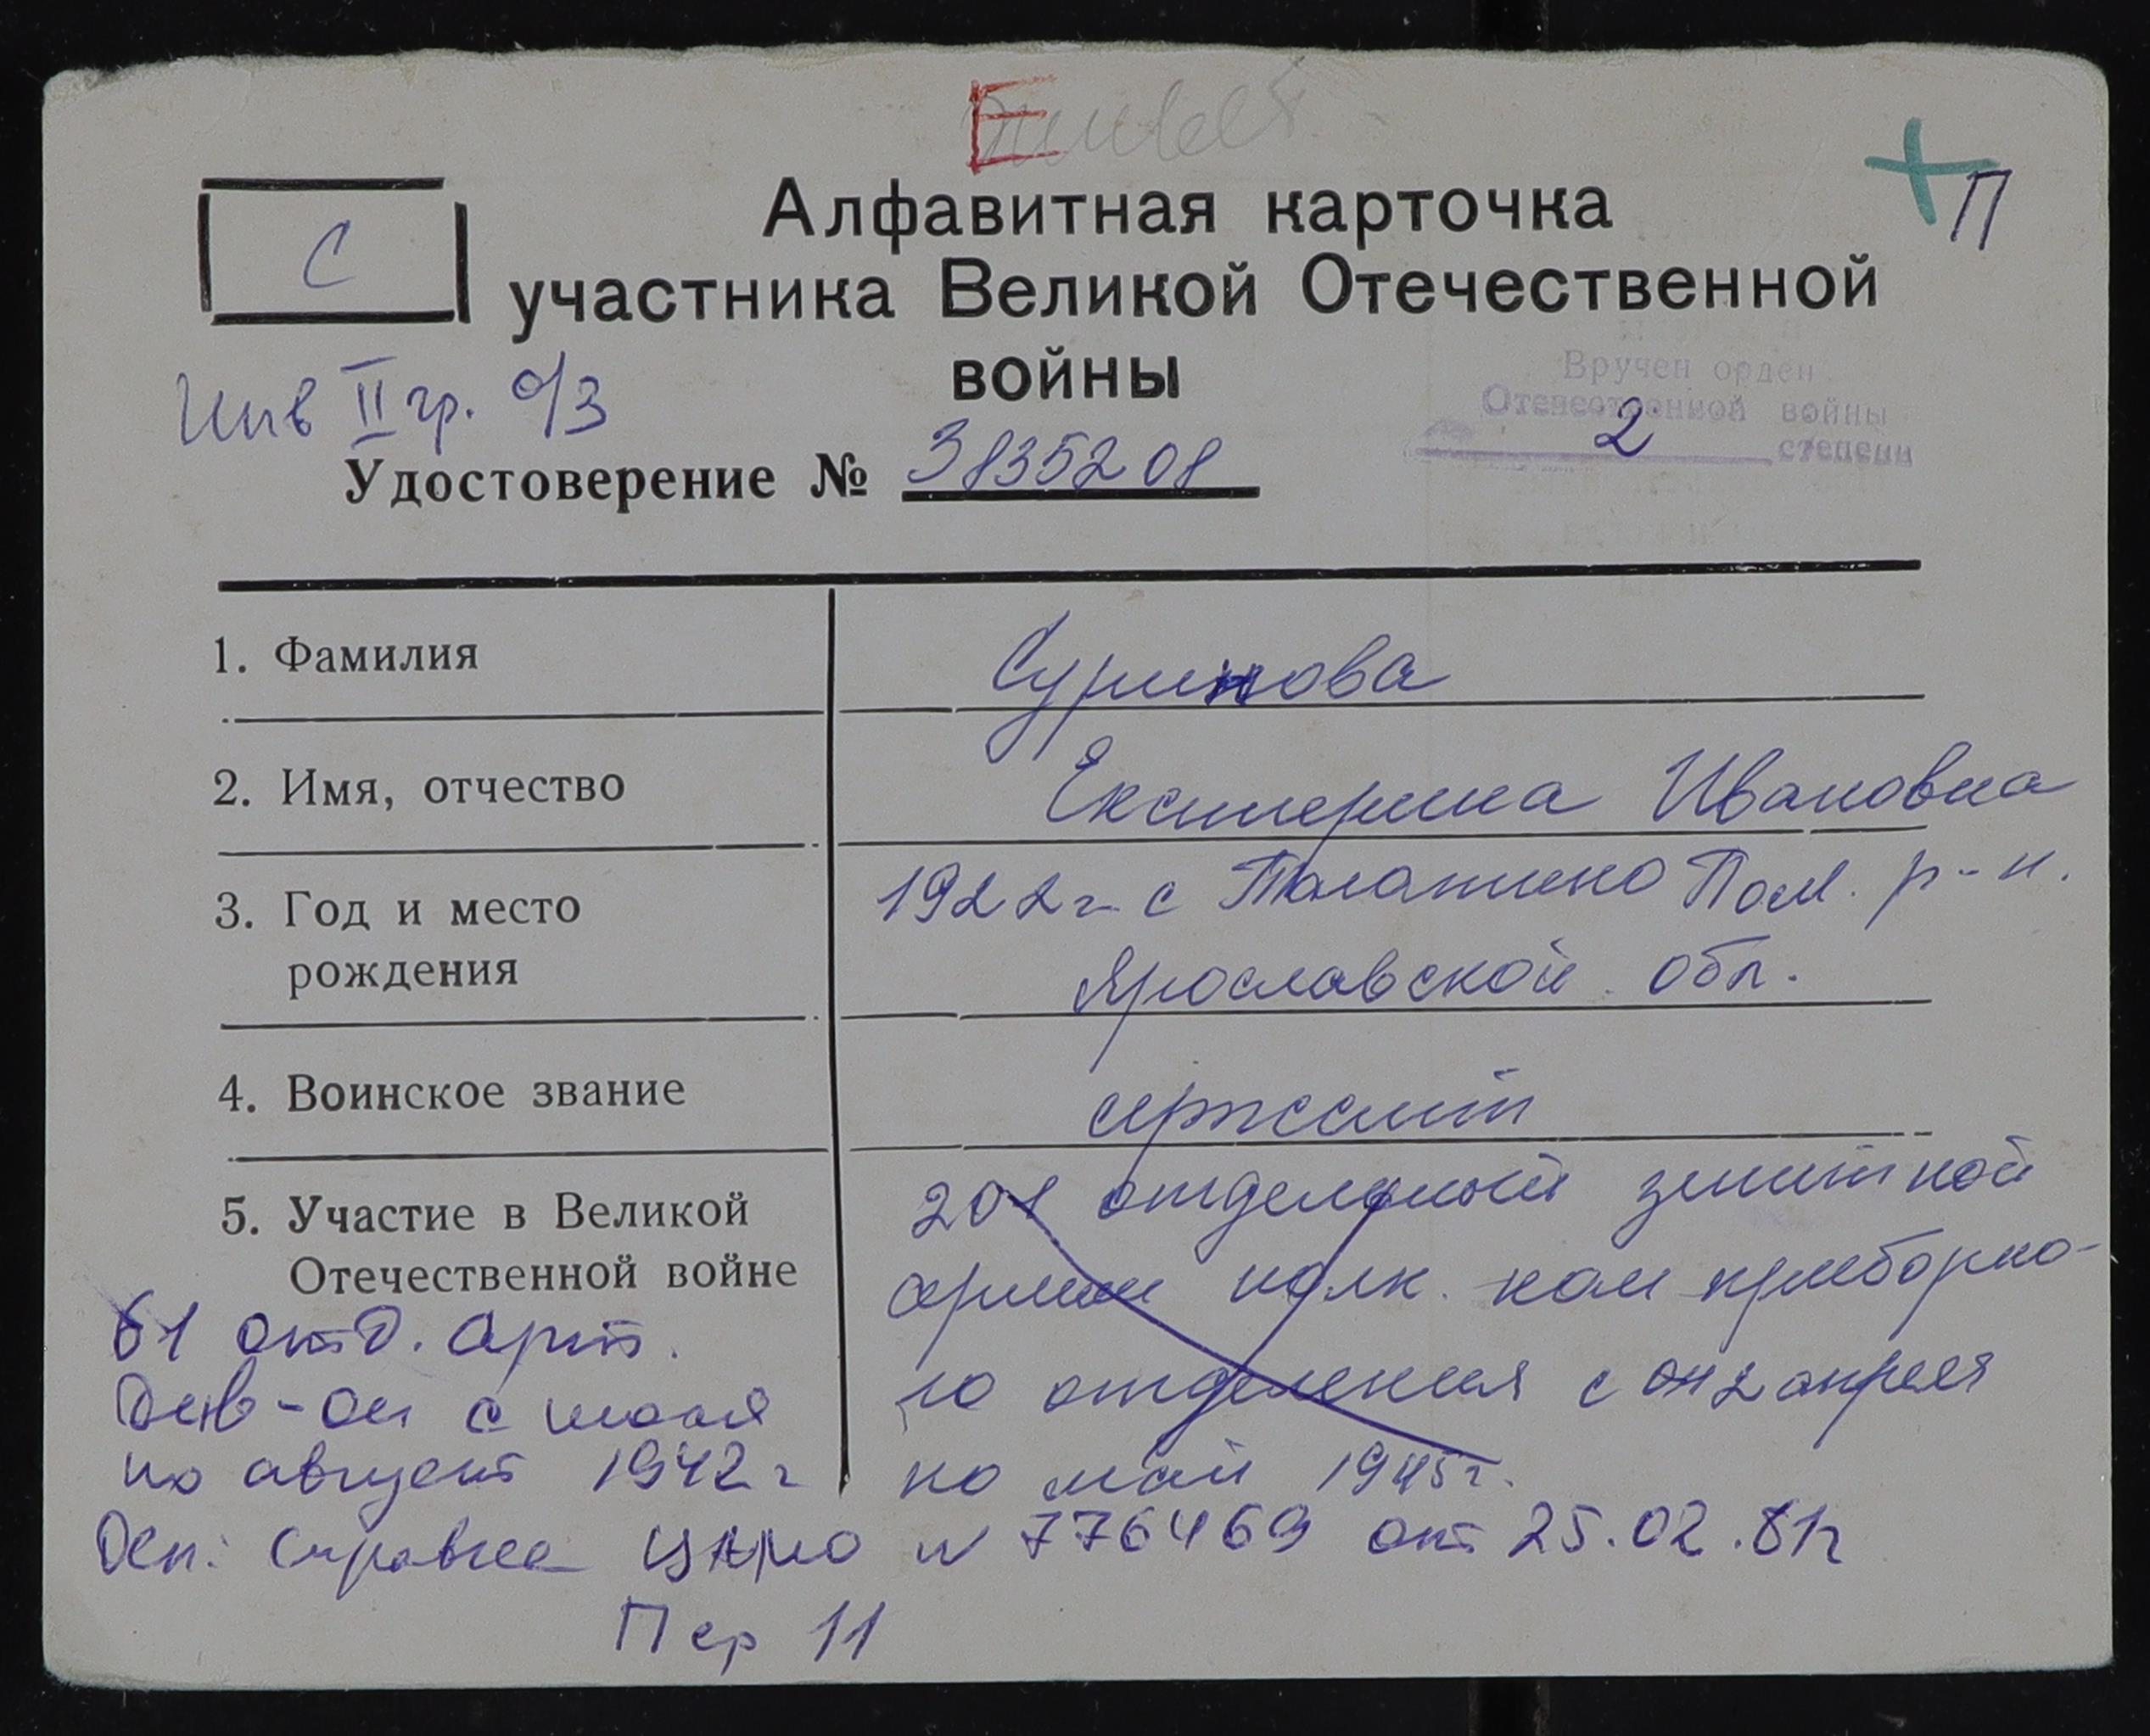 Е живет
Алфавитная карточка
+ П
С
участника Великой Отечественной
войны
Инв II гр. о/з
Вручен орден
Отечественной войны
2 степени
Удостоверение № 3835208
1. Фамилия Суринова
2. Имя, отчество Екатерина Ивановна
3. Год и место 1922 г. с Пош. р-н.
рождения Ярославской обл.
4. Воинское звание сержант
5. Участие в Великой 201 отдельный зенитной
Отечественной войне полк. ком приборно-
61 отд. арт. го отделения с апреля
див-он с июля по май 1945 г.
по август 1942 г
Осн: Справка ЦАМО N 776469 от 25.02.81г
Пер 11